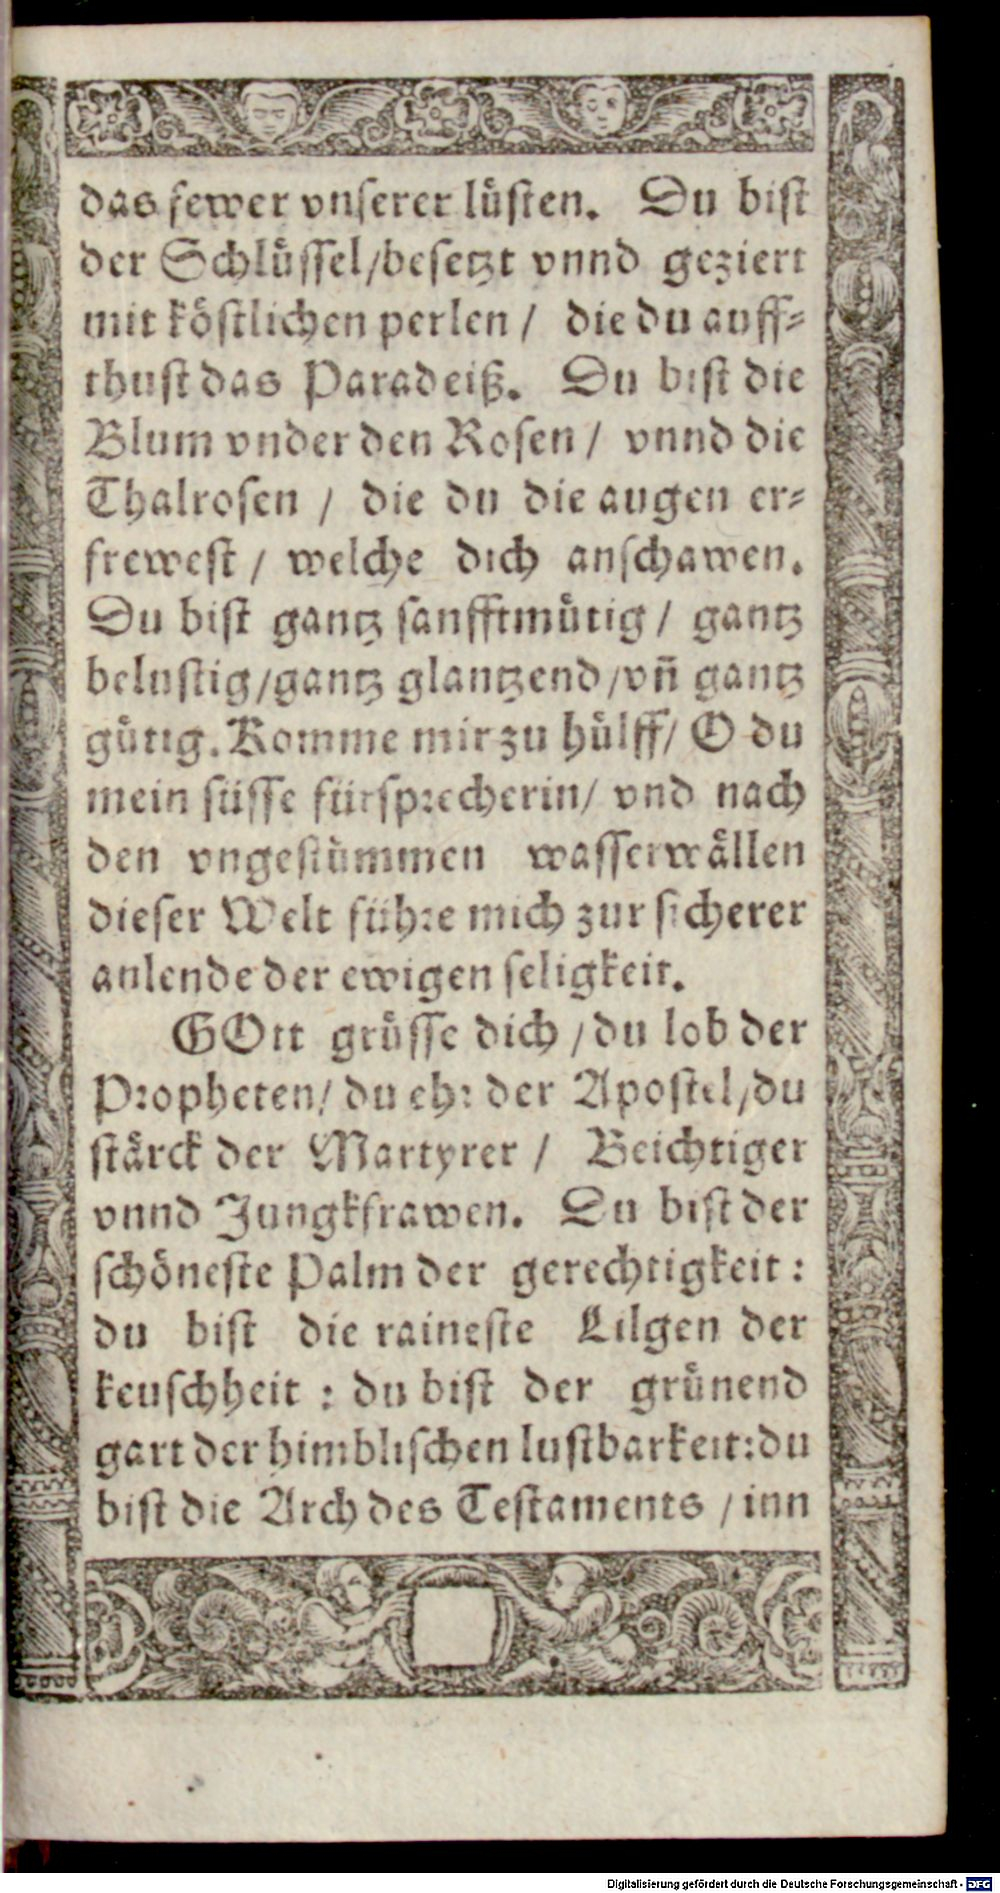 das fewer vnserer lüsten. Du bist
der Schlüssel/besetzt vnnd geziert
mit köstlichen perlen / die du auff-
thust das Paradeiß. Du bist die
Blum vnder den Rosen / vnnd die
Thalrosen / die du die augen er-
frewest / welche dich anschawen.
Du bist gantz sanfftmütig / gantz
belustig/gantz glantzend/vñ gantz
gütig. Komme mir zu hülff/ O du
mein süsse fürsprecherin/ vnd nach
den vngestümmen wasserwällen
dieser Welt führe mich zur sicherer
anlende der ewigen seligkeit.
GOtt grüsse dich / du lob der
Propheten/ du ehr der Apostel/du
stärck der Martyrer / Beichtiger
vnnd Jungkfrawen. Du bist der
schöneste Palm der gerechtigkeit:
du bist die raineste Lilgen der
keuschheit : du bist der grünend
gart der himblischen lustbarkeit:du
bist die Arch des Testaments / inn
Digitalisierung gefördert durch die Deutsche Forschungsgemeinschaft - DFG